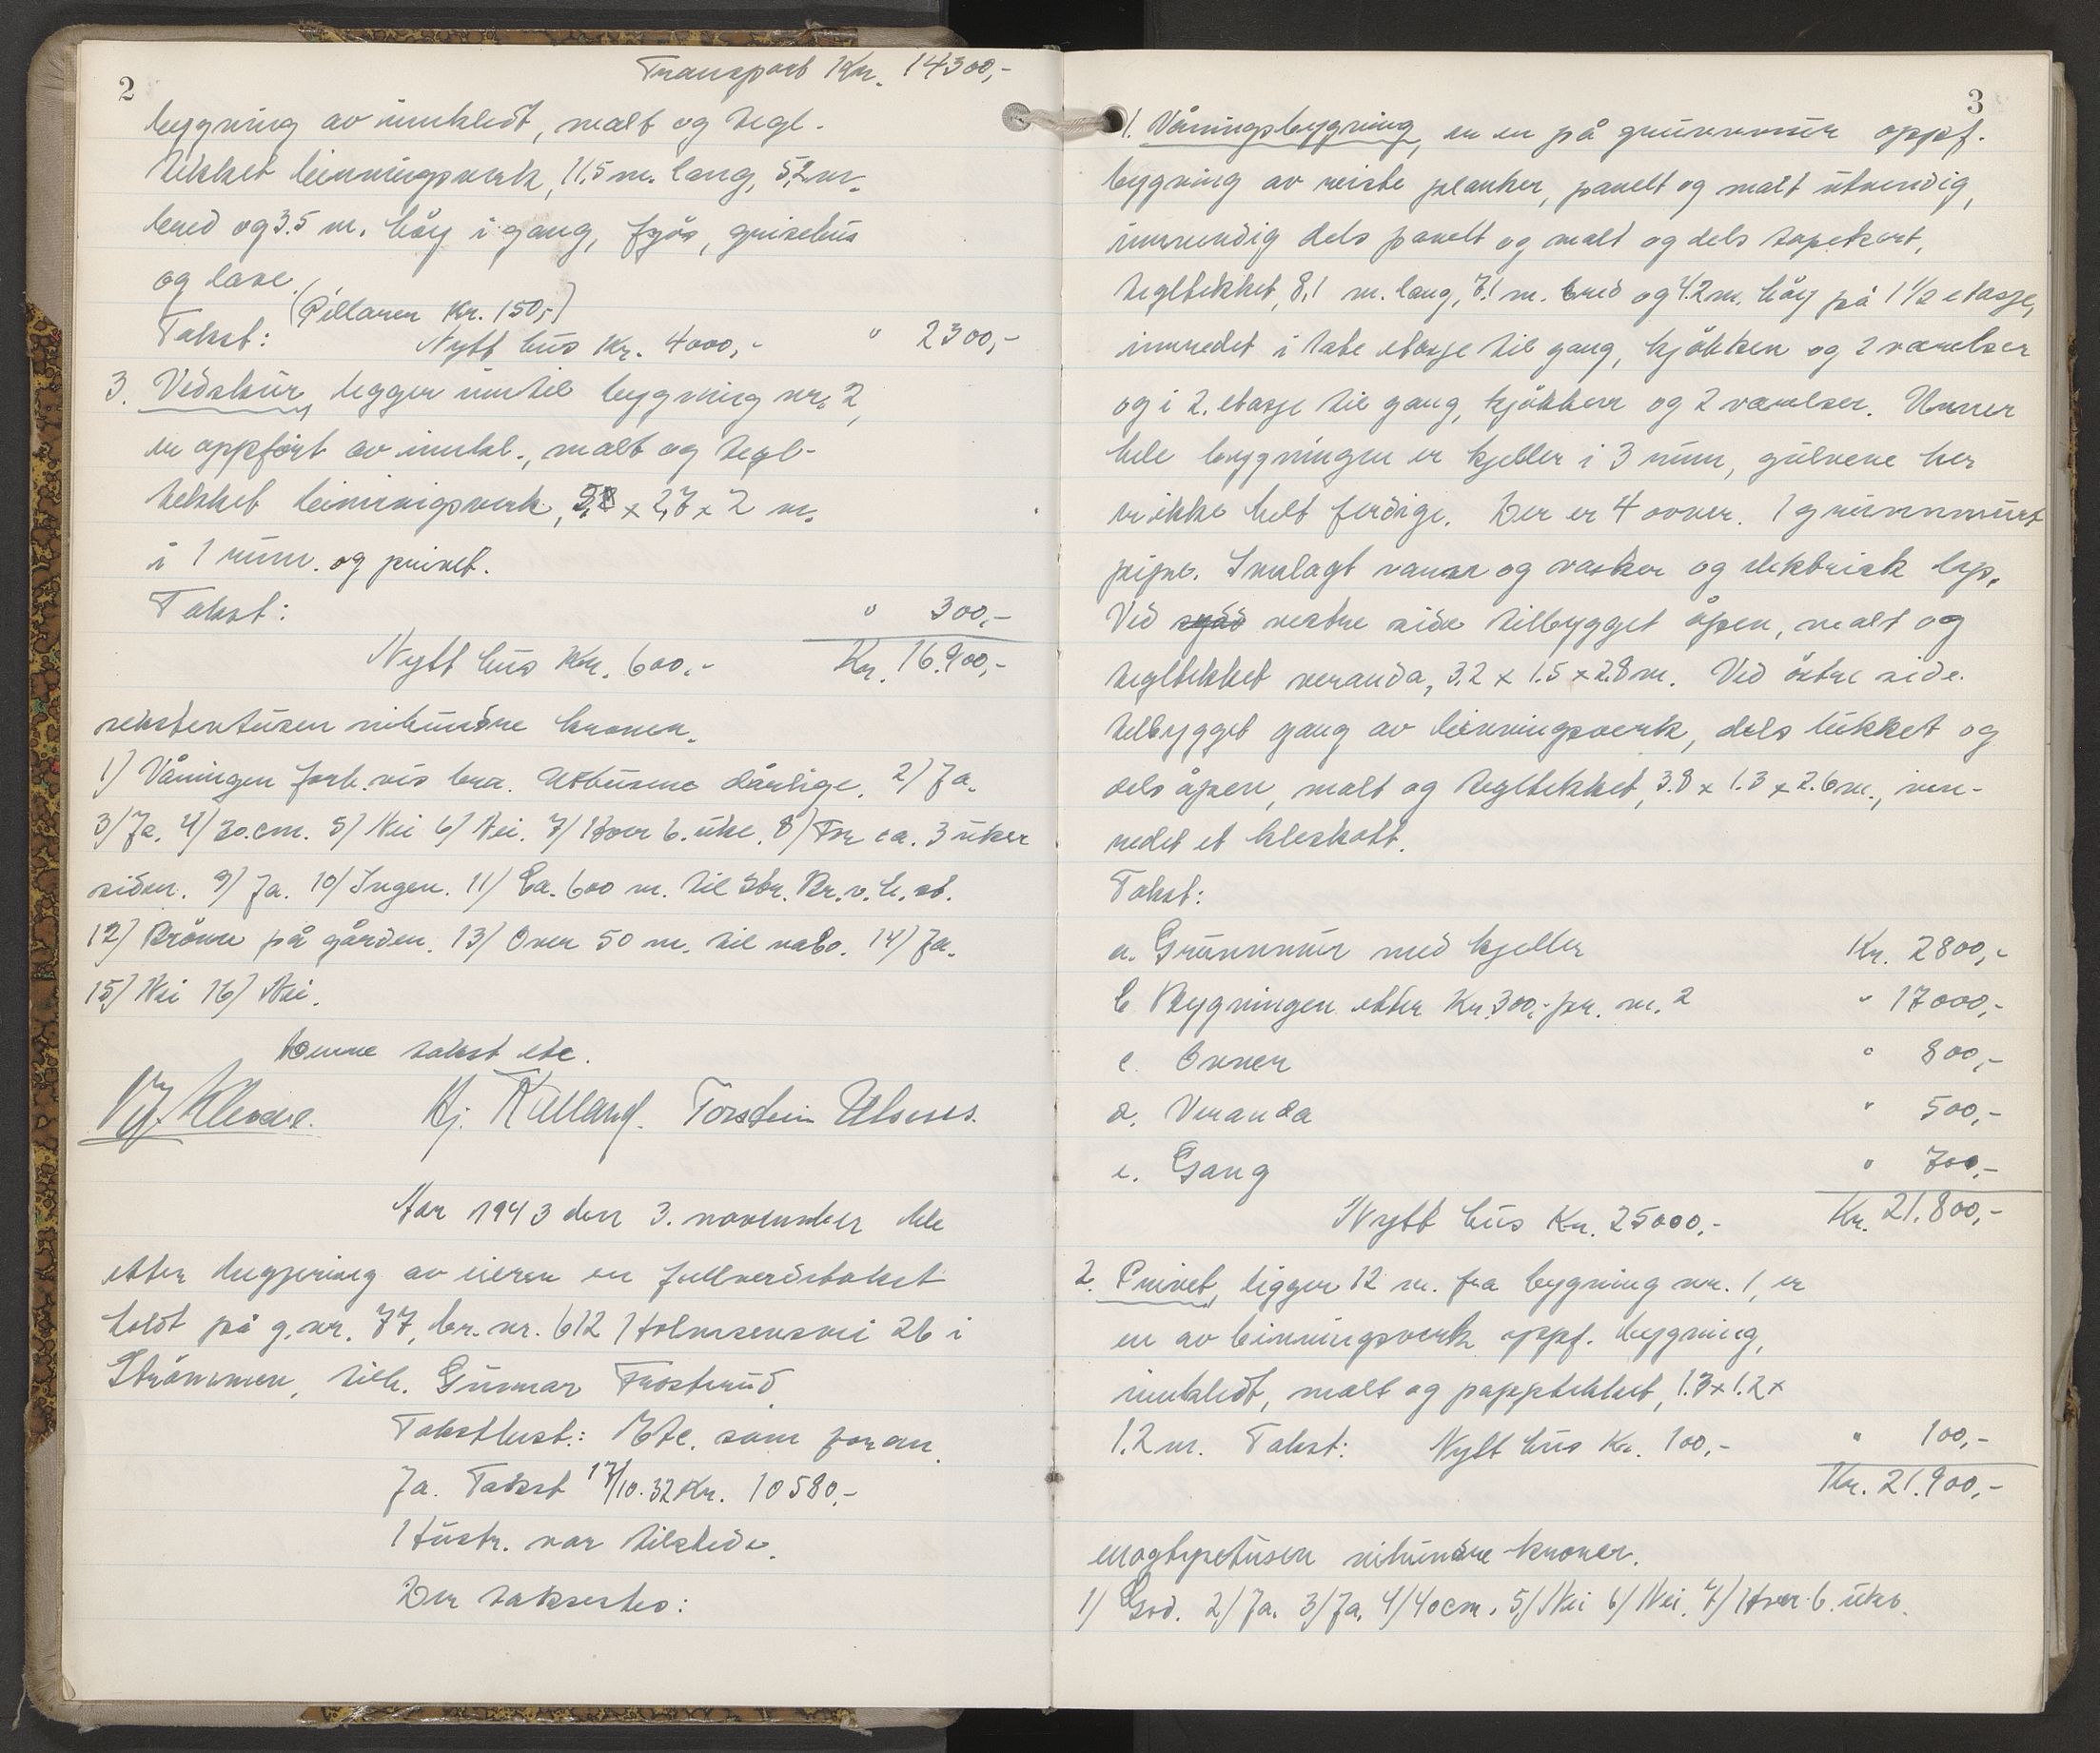 2
Transport Kr. 14300,-
bygning av innkledt, malt og tegl-
tekket binningsverk, 11,5 m. lang, 5,2 m.
bred og 3.5 m. höy i gang, fjös, grisehus
og lave.
(Pillarer Kr. 150,-)
Takst: Nytt hus Kr. 4000,- " 2300,-
3. Vedskur, ligger inntil bygning nr. 2,
er oppfört av innkl., malt og tegl-
tekket binningsverk, x 2,7 x 2 m.
i 1 rum. og privet.
Takst: " 300,-
Nytt hus Kr. 600,- Kr. 16.900,-
sekstentusen nihundre kroner.
1) Våningen forh.vis bra. Uthusene dårlige. 2) Ja.
3/ Ja. 4/ 20.cm. 5/ Nei 6/ Nei. 7/ Hver 6. uke. 8/ For ca. 3 uker
siden. 9/ Ja. 10/ Ingen. 11/ Ca. 600 m. til Str. Br.v.h.st.
12) Brönn på gården. 13) Over 50 m. til nabo. 14) Ja.
15) Nei 16) Nei.
Denne takst etc.
Hj. Kulland. Torstein
Aar 1943 den 3. november ble
etter begjering av eieren en fullverdstakst
holdt på g.nr. 77, br.nr. 612 Holmsensvei 26 i
Strömmen, tilh. Gunnar Frostrud.
Takstbest.: Etc. som foran.
Ja. Takst 17/10.32 Kr. 10580,-
Hustr. var tilstede.
Der takseres:
3
1. Våningsbygning, er en på grunnmur oppf.
bygning av reiste planker, panelt og malt utvendig,
innvendig dels panelt og malt og dels tapetsert,
tegltekket, 8,1 m. lang, 7.1 m. bred og 4.2 m. höy på 1 1/2 etasje,
innredet i 1ste etasje til gang, kjökken og 2 værelser
og i 2. etasje til gang, kjökken og 2 værelser. Under
hele bygningen er kjeller i 3 rum, gulvene her
er ikke helt ferdige. Der er 4 ovner. 1 grunnmurt
pipe. Innlagt vann og vasker og elektrisk lys.
Ved vestre side tilbygget åpen, malt og
tegltekket veranda, 3.2 x 1.5 x 2.8 m. Ved östre side
tilbygget gang av binningsverk, dels lukket og
dels åpen, malt og tegltekket, 3.8 x 1.3 x 2.6 m., inn-
redet et kleskott.
Takst:
a. Grunnmur med kjeller Kr. 2800,-
b Bygningen etter Kr. 300,- pr. m.2 " 17000,-
c. Ovner " 800,-
d. Veranda " 500,-
e. Gang " 700,-
Nytt hus Kr. 25000,- Kr. 21.800,-
2. Privet, ligger 12 m. fra bygning nr. 1, er
en av binningsverk oppf. bygning,
innkledt, malt og papptekket, 1.3 x 1.2 x
1.2 m. Takst: Nytt hus Kr. 100,- " 100,-
Kr. 21.900,-
enogtyvetusen nihundre kroner.
1) God. 2/ Ja. 3/ Ja. 4/ 40 cm. 5/ Nei 6/ Nei. 7/ Hver 6. uke.